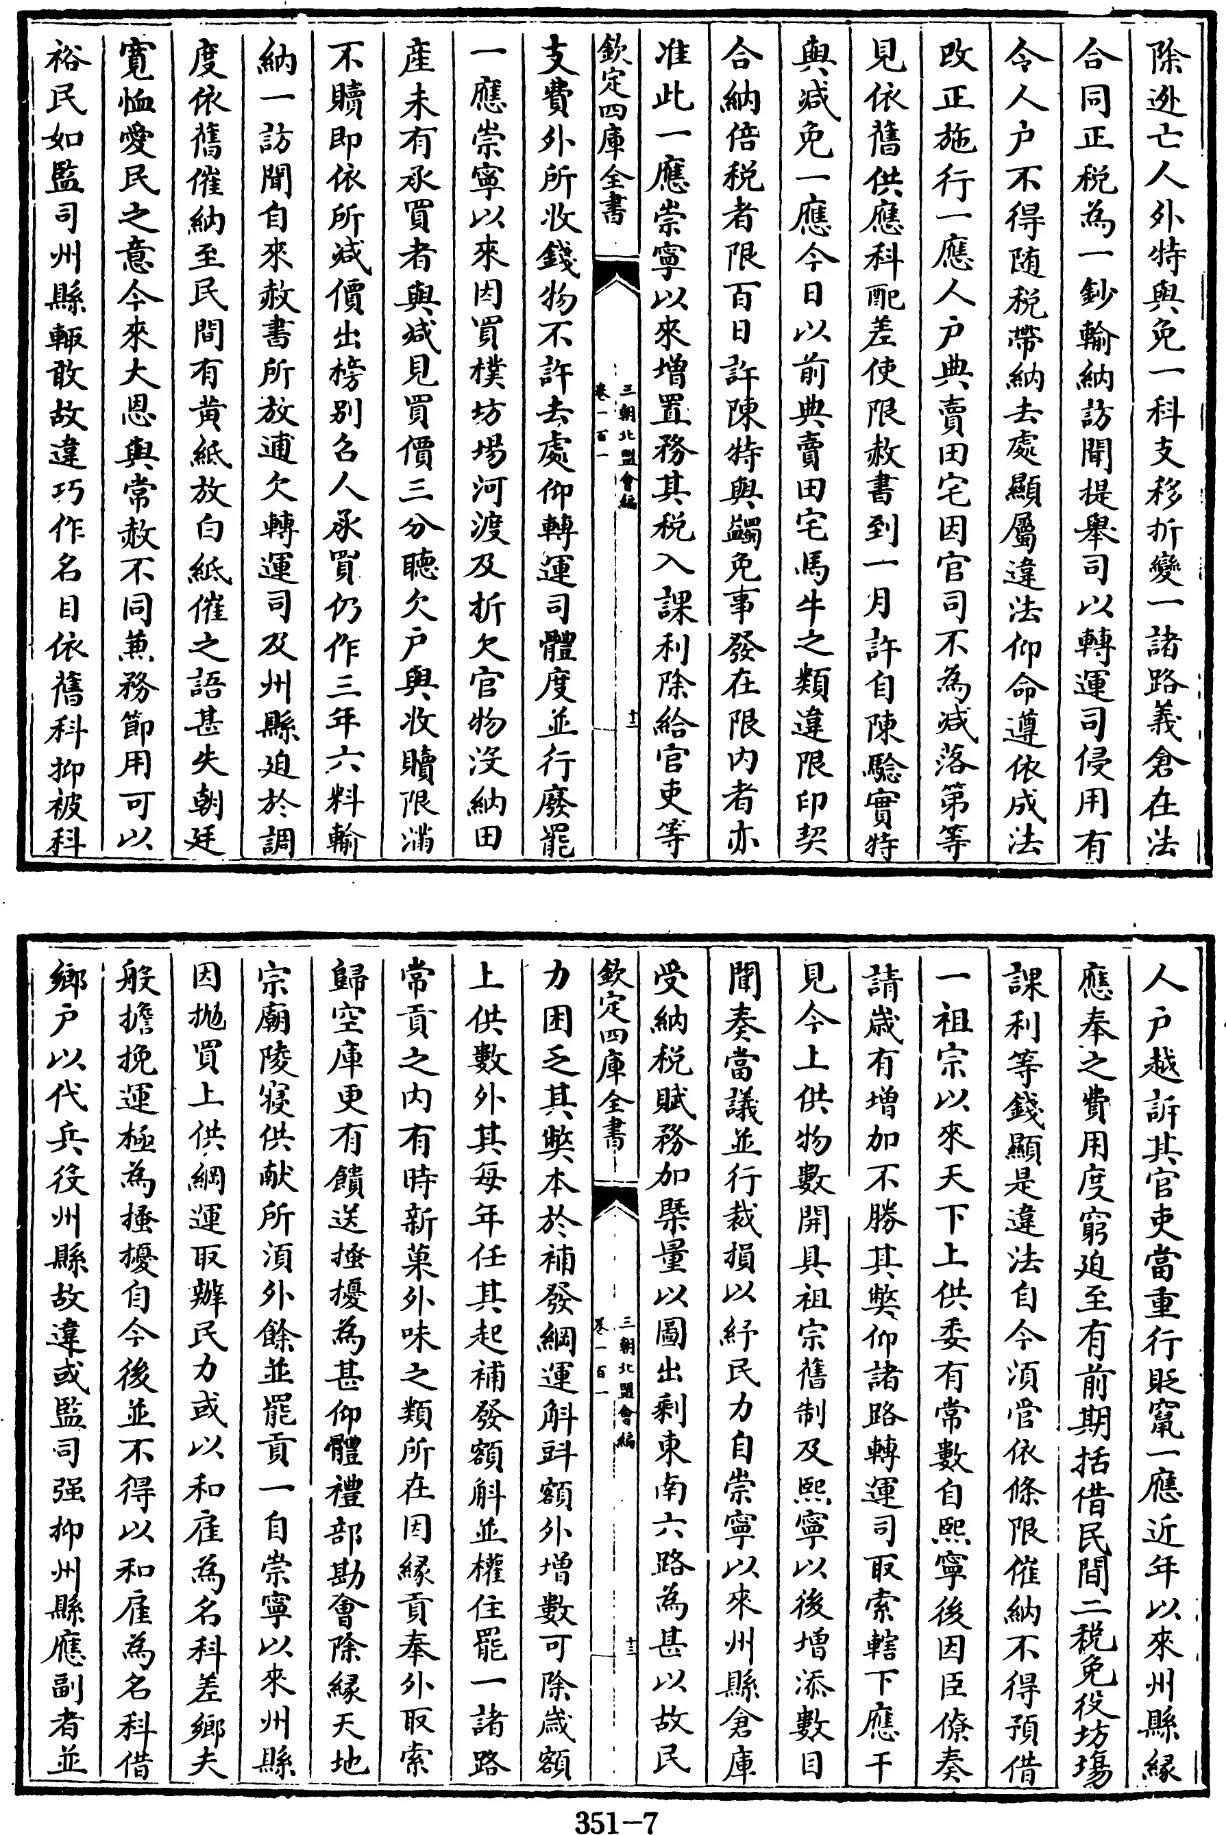 除逃亡人外特與免一科支移折變一諸路義倉在法
合同正税為一鈔輸納訪聞提舉司以轉運司侵用有
令人户不得随税帶納去處顯屬違法仰命遵依成法
改正施行一應人户典賣田宅因官司不為减落第等
見依舊供應科配差使限赦書到一月許自陳驗實特
與减免一應今日以前典賣田宅馬牛之類違限印契
合納倍税者限百日許陳特與蠲免事發在限内者亦
准此一應崇寧以來增置務其税入課利除給官吏等
欽定四庫全書
三朝北盟會編
卷一百一
十二
支費外所收錢物不許去處仰轉運司體度並行廢罷
一應崇寧以來因買樸坊場河渡及折欠官物沒納田
産未有承買者與减見買價三分聽欠户與收贖限滿
不贖即依所减價出榜别名人承買仍作三年六料輸
納一訪聞自來赦書所放逋欠轉運司及州縣迫於調
度依舊催納至民間有黄紙放白紙催之語甚失朝廷
寛恤愛民之意今來大恩與常赦不同兼務節用可以
裕民如監司州縣輙敢故違巧作名目依舊科抑被科
人户越訴其官吏當重行貶竄一應近年以來州縣緣
應奉之費用度窮迫至有前期括借民間二税免役坊塲
課利等錢顯是違法自今須管依條限催納不得預借
一祖宗以來天下上供委有常數自熙寧後因臣僚奏
請歲有增加不勝其弊仰諸路轉運司取索轄下應干
見今上供物數開具祖宗舊制及熙寧以後增添數目
聞奏當議並行裁損以紓民力自崇寧以來州縣倉庫
受納税賦務加槩量以圖出剩東南六路為甚以故民
欽定四庫全書
三朝北盟會編
卷一百一
十三
力困乏其弊本於補發綱運斛㪷額外增數可除歲額
上供數外其每年任其起補發額斛並權住罷一諸路
常貢之内有時新菓外味之類所在因縁貢奉外取索
歸空庫更有饋送搔擾為甚仰體禮部勘會除縁天地
宗廟陵寢供献所須外餘並罷貢一自崇寧以來州縣
因抛買上供綱運取辦民力或以和雇為名科差鄉夫
般擔挽運極為搔擾自今後並不得以和雇為名科借
鄉户以代兵役州縣故違或監司强抑州縣應副者並
351-7